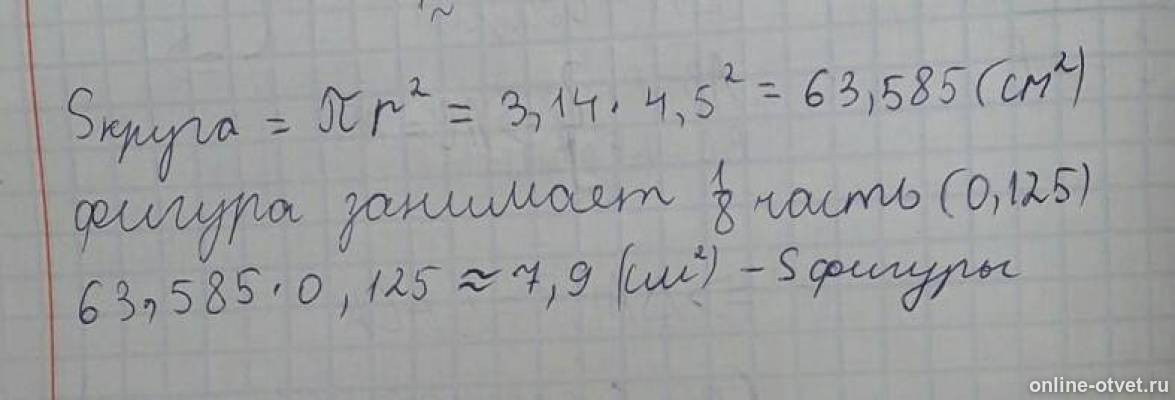 Sкруга = πr² = 3,14 · 4,5² = 63,585 (см²)
фигура занимает 1/8 часть (0,125)
63,585 · 0,125 ≈ 7,9 (см²) – S фигуры
online-otvet.ru